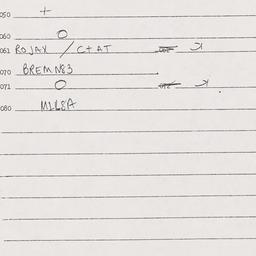 050 +
060 O
061 ROJAX / C+AT
070 BREMN83
071 O
080 M1L8A